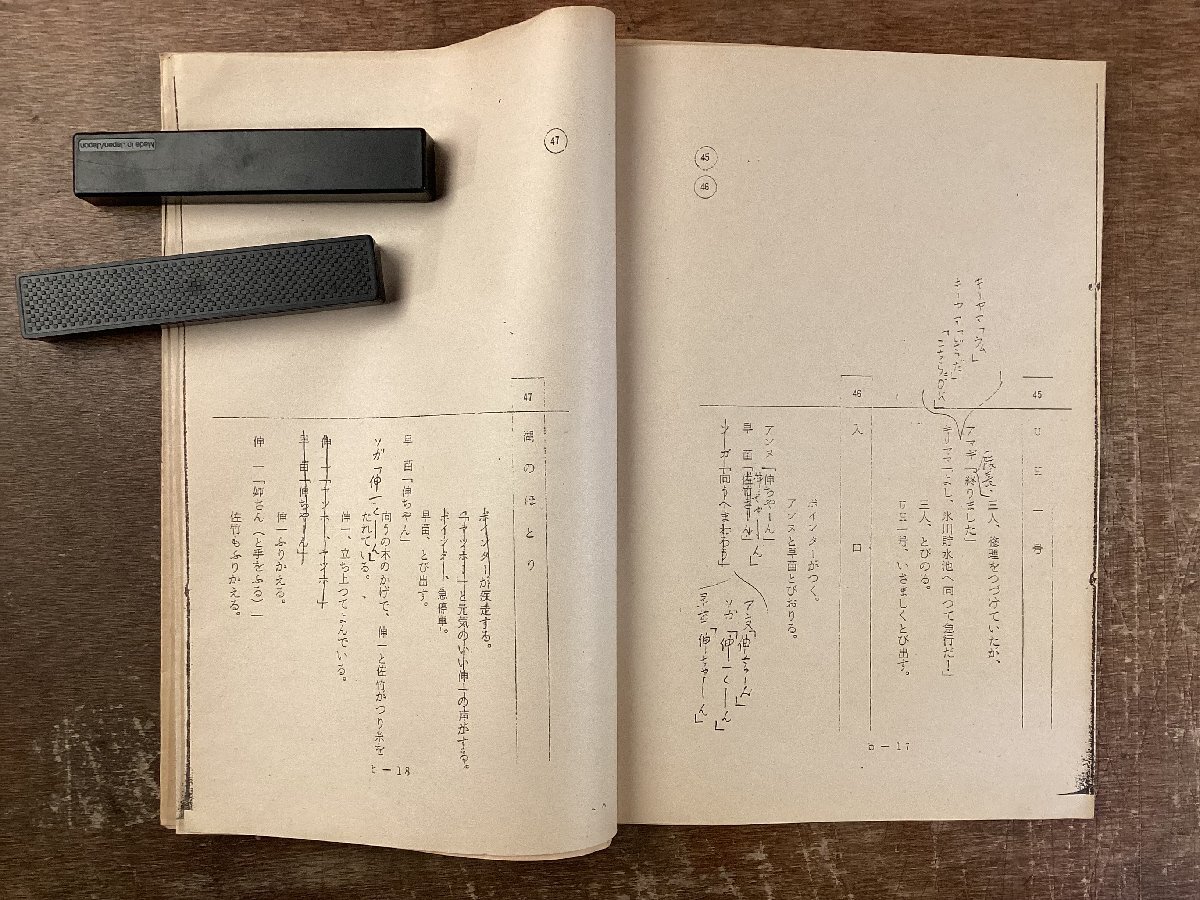 45
46
45
U 三 一 号
三人、修理をつづけていたが、
アマギ「終りました」
キリヤマ「よし、氷川貯水池へ向つて急行だ!」
三人、とびのる。
U三一号、いさましくとび出す。
キリヤマ「ウム」
46
入 口
ポインターがつく。
アンヌと早苗とびおりる。
アンヌ「伸ちゃーん」
早 苗「佐竹さーん」
ソーガ「向うへまわろう」
アンヌ「伸ちゃーん」
ソガ「伸一くーん」
早苗「伸ちゃーん」
b－17
47
47
湖 の ほ と り
ポインターが疾走する。
「ヤッホー」と元気のいい伸一の声がする。
ポインター、急停車。
早苗、とび出す。
早 苗「伸ちゃん」
ソガ「伸一くーん」
向うの木のかげで、伸一と佐竹がつり糸を
たれている。
伸一、立ち上つてよんでいる。
伸 一「ヤッホー、ヤッホー」
早 苗「伸ちゃーん」
伸一ふりかえる。
伸 一「姉さん(と手をふる)」
佐竹もふりかえる。
b－18
Made in Japan/Japon